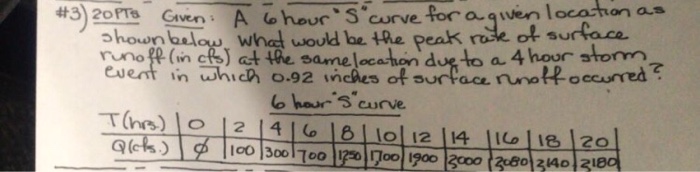 #3) 20 PTS Given: A 6 hour "S" curve for a given location as
shown below. What would be the peak rate of surface
runoff (in cfs) at the same location due to a 4 hour storm
event in which 0.92 inches of surface runoff occurred?
6 hour "S" curve
T(hrs.) | 0 | 2 | 4 | 6 | 8 | 10 | 12 | 14 | 16 | 18 | 20 |
Q(cfs.) | ∅ | 100 | 300 | 700 | 1250 | 1700 | 1900 | 2000 | 2080 | 2140 | 2180